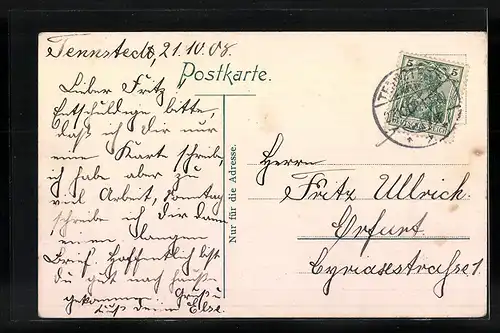 Tennstedt, 21.10.08.
Postkarte.
Lieber Fritz
Entschuldige bitte,
daß ich dir nur
eine Karte schreibe
ich habe aber zu
viel Arbeit, Sonntag
schreibe ich dir dann
einen langen
Brief. Hoffentlich bist
du gut nach Hause
gekommen Gruß u.
Kuß deine Else.
Nur für die Adresse.
5 5
Herrn
Fritz Ullrich.
Erfurt.
Cyriaxstrasse 1